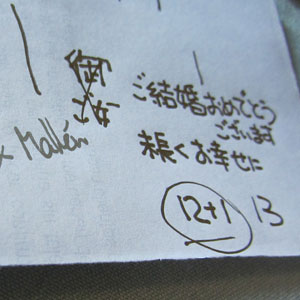 御
ご結婚おめでとう
ございます
末長くお幸せに
x Mallén
12+1 13